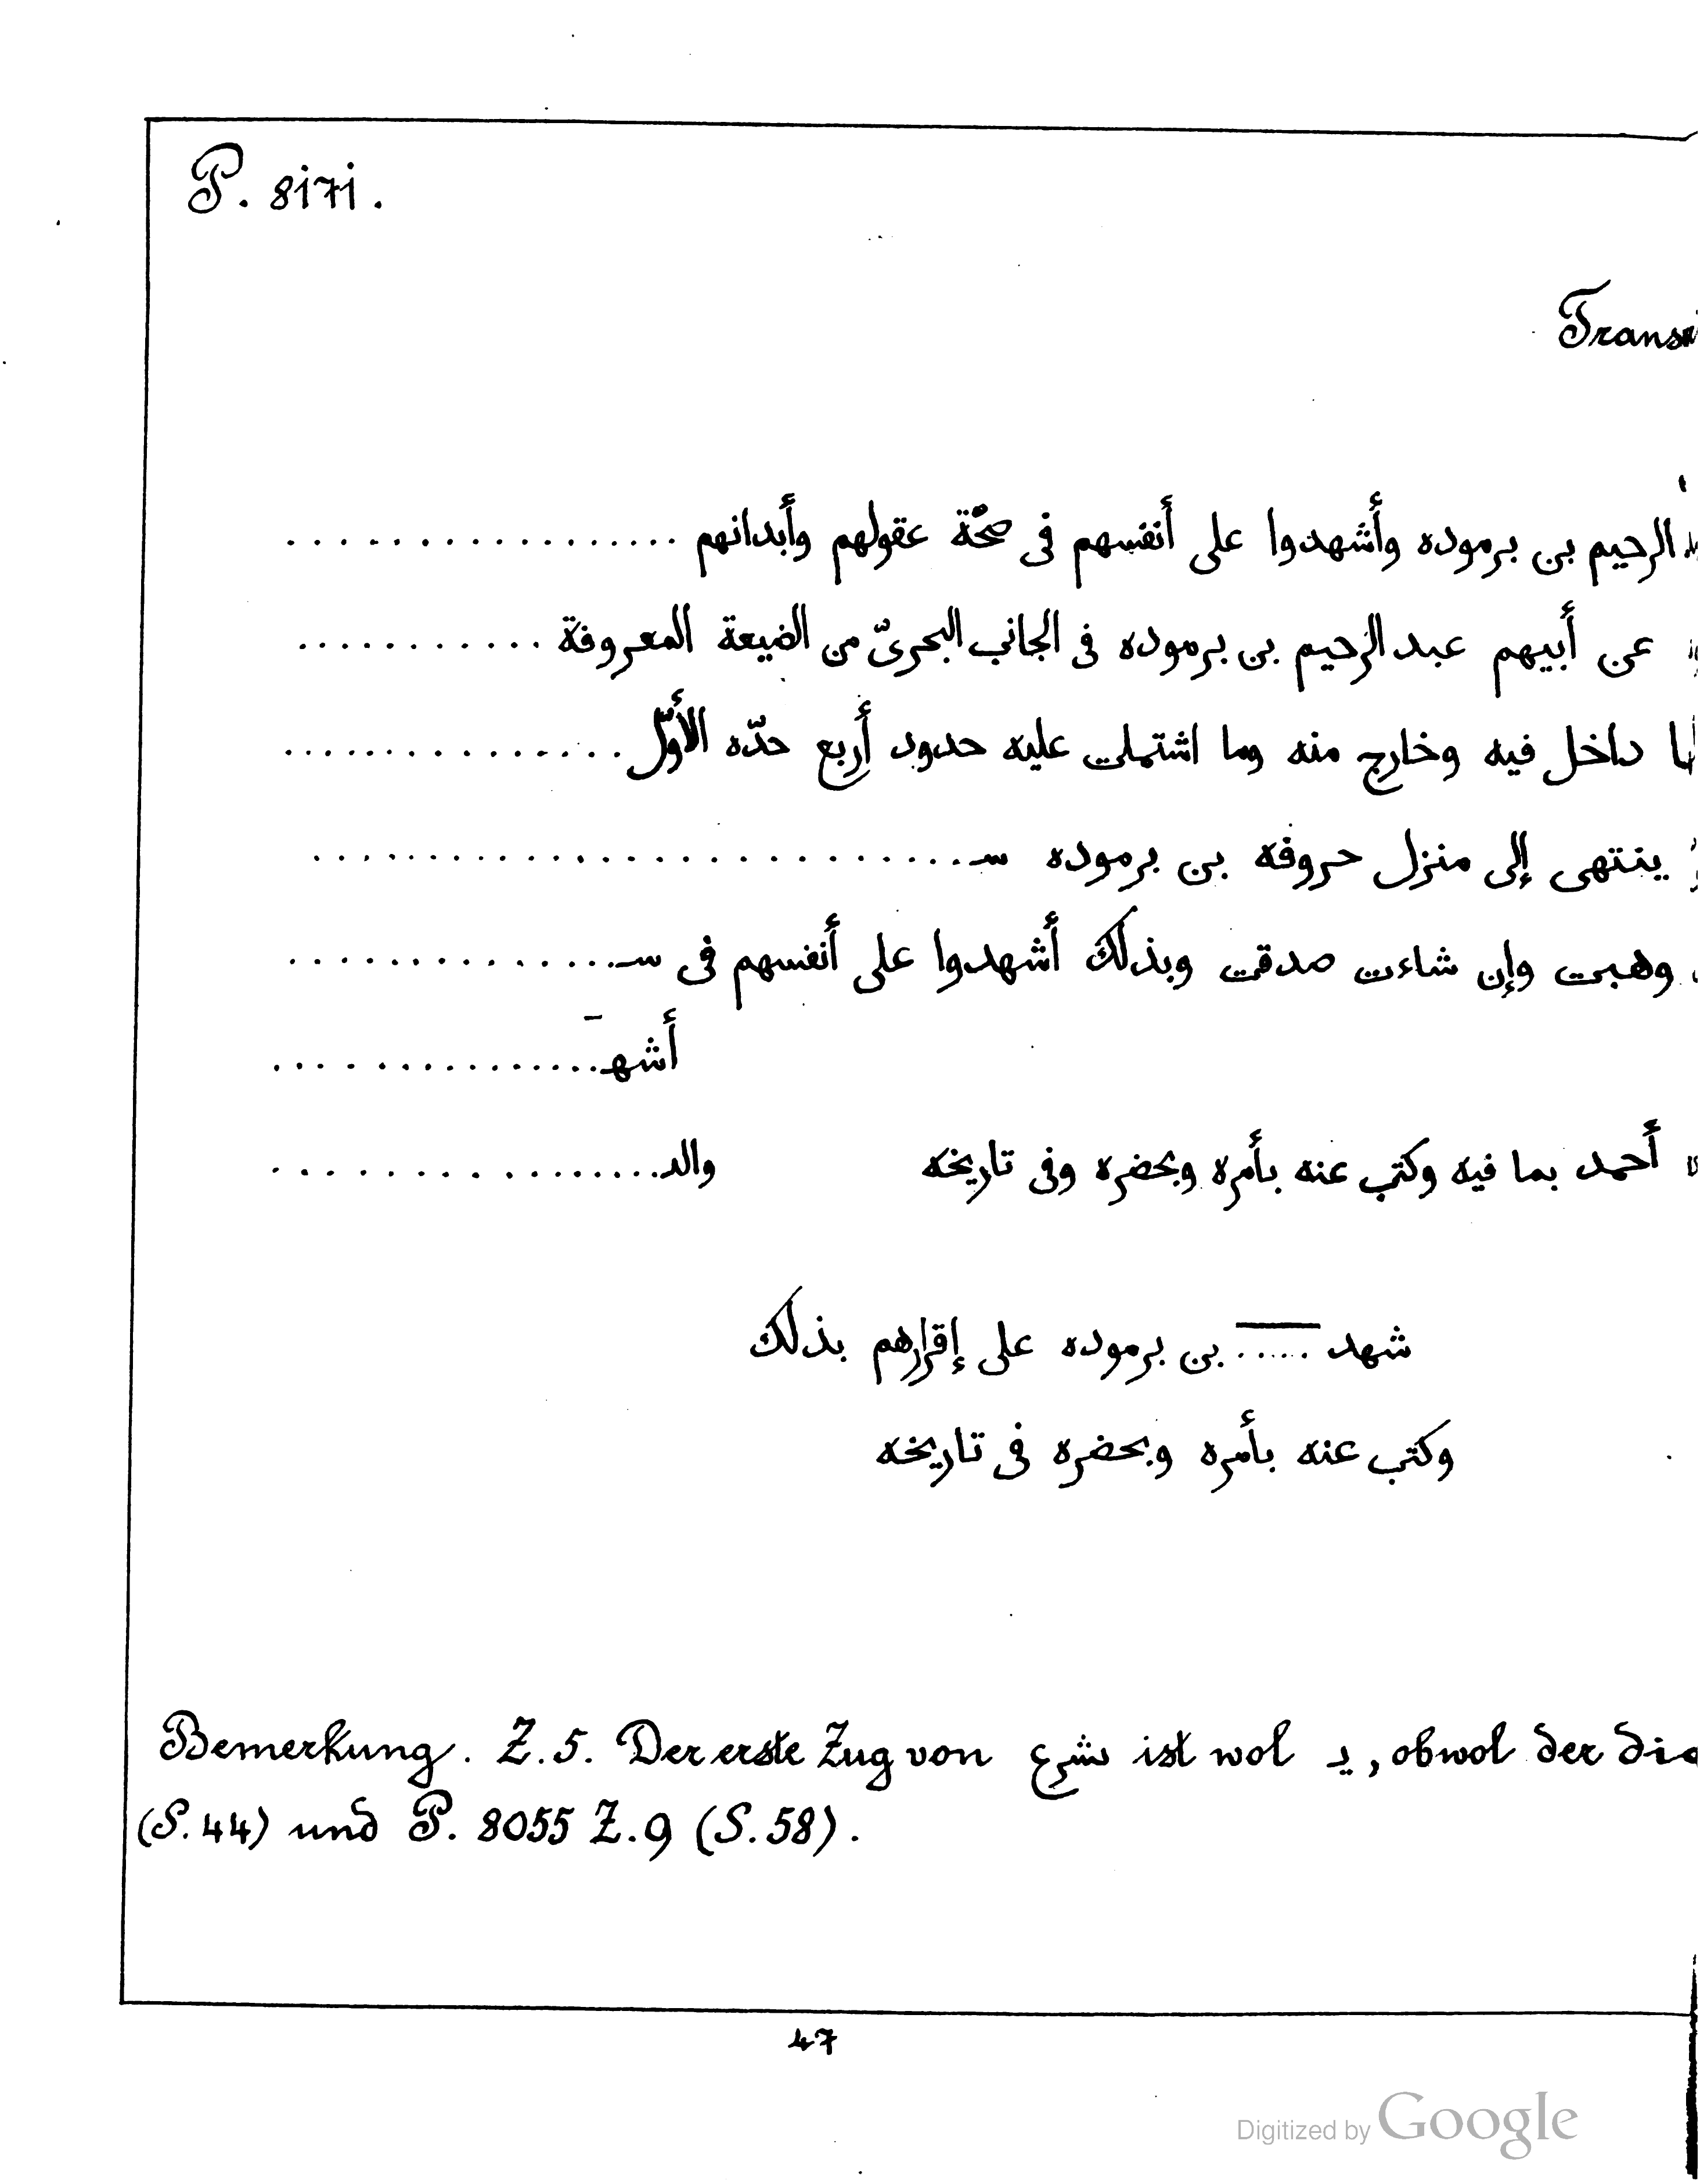 P. 8171.
الرحيم بن برموده وأشهدوا على أنفسهم فى صحّة عقولهم وأبدانهم . . . . . . . . . . . . . . . . . .
عن أبيهم عبد الرحيم بن برموده فى الجانب البحرىّ من الضيعة المعروفة . . . . . . . . . . .
داخل فيه وخارج منه وما اشتملت عليه حدود أربع حدّه الأوّل . . . . . . . . . . . . . . .
ينتهى إلى منزل حروفه بن برموده سـ . . . . . . . . . . . . . . . . . . . . . . . . .
وهبت وإن شاءت صدقت وبذلك أشهدوا على أنفسهم فى سـ . . . . . . . . . . . . . .
أشهـ . . . . . . . . . . . . . .
أحمد بما فيه وكتب عنه بأمره وبحضره وفى تاريخه والد . . . . . . . . . . . . . . . .
شهد ..... بن برموده على إقرارهم بذلك
وكتب عنه بأمره وبحضره فى تاريخه
Bemerkung. Z.5. Der erste Zug von ىشرع ist wol ـد, obwol der
(S.44) und P. 8055 Z.9 (S.58).
47
Digitized by Google